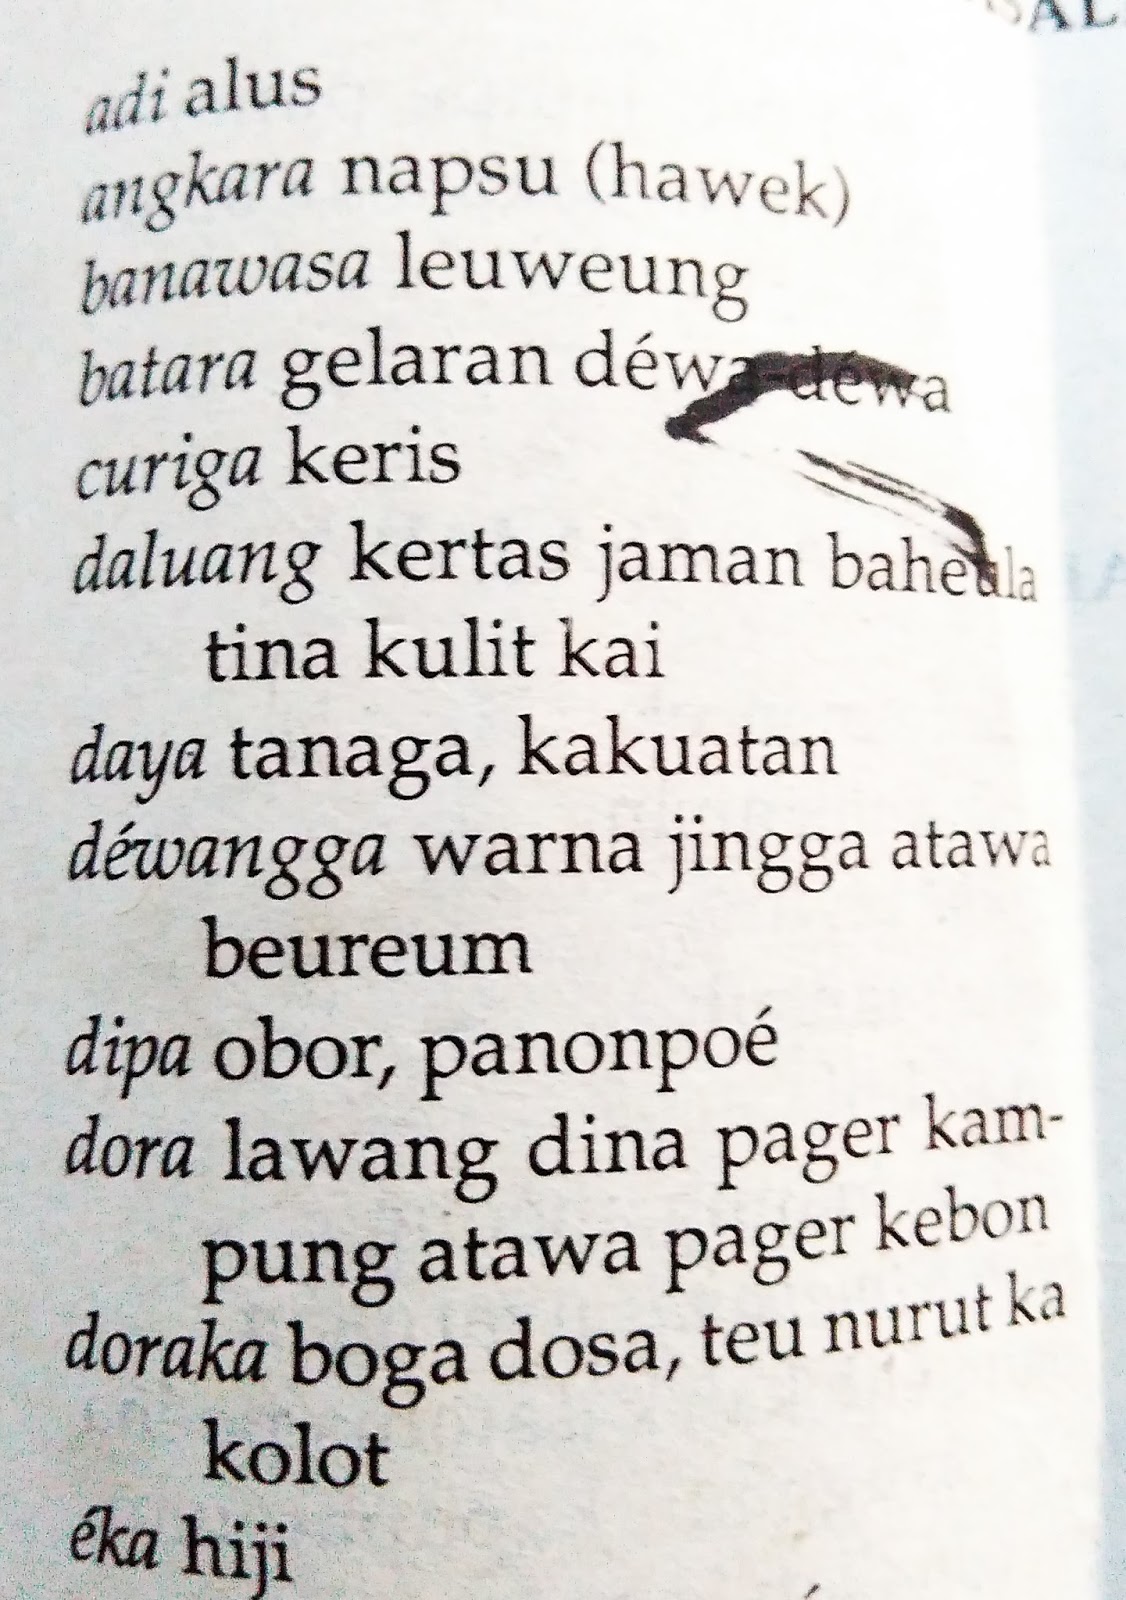 adi alus
angkara napsu (hawek)
banawasa leuweung
batara gelaran déwa-déwa
curiga keris
daluang kertas jaman baheula
tina kulit kai
daya tanaga, kakuatan
déwangga warna jingga atawa
beureum
dipa obor, panonpoé
dora lawang dina pager kam-
pung atawa pager kebon
doraka boga dosa, teu nurut ka
kolot
éka hiji